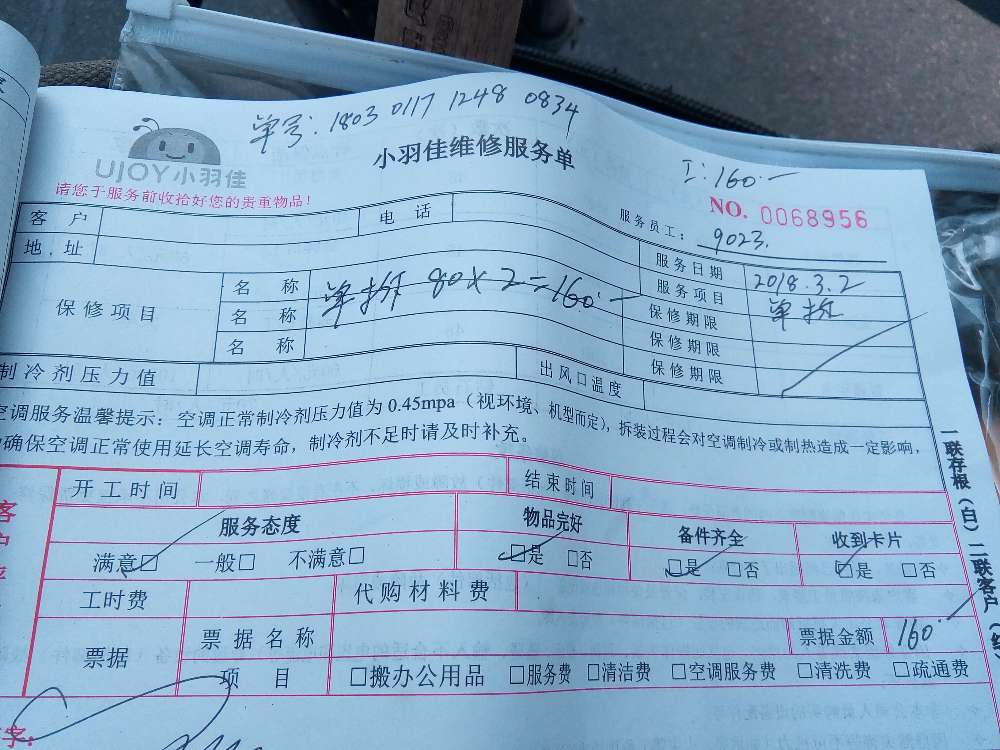 单号：1803 0117 1248 0834
UJOY小羽佳
小羽佳维修服务单
工：160.—
请您于服务前收拾好您的贵重物品！
NO. 0068956
服务员工： 9023.
客户 电话
地．址
服务日期 2018.3.2
保修项目
名称 单拆 80×2=160.—
服务项目 单拆
名称
保修期限
名称
保修期限
保修期限
制冷剂压力值 出风口温度
空调服务温馨提示：空调正常制冷剂压力值为 0.45mpa（视环境、机型而定），拆装过程会对空调制冷或制热造成一定影响，
确保空调正常使用延长空调寿命，制冷剂不足时请及时补充。
一联存根（白）二联客户
开工时间 结束时间
客户
服务态度 物品完好 备件齐全 收到卡片
满意☑ 一般□ 不满意□ ☑是 □否 ☑是 □否 ☑是 □否
工时费 代购材料费
票据 票据名称 票据金额 160.—
项目 □搬办公用品 □服务费 □清洁费 □空调服务费 □清洗费 □疏通费
字：